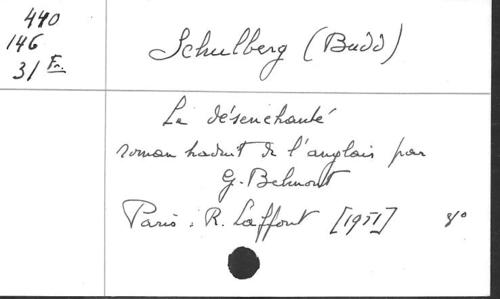 440
146
31 Fr.
Schulberg (Budd)
Le désenchanté
roman traduit de l'anglais par
G. Belmont
Paris, R. Laffont [1951] 8°